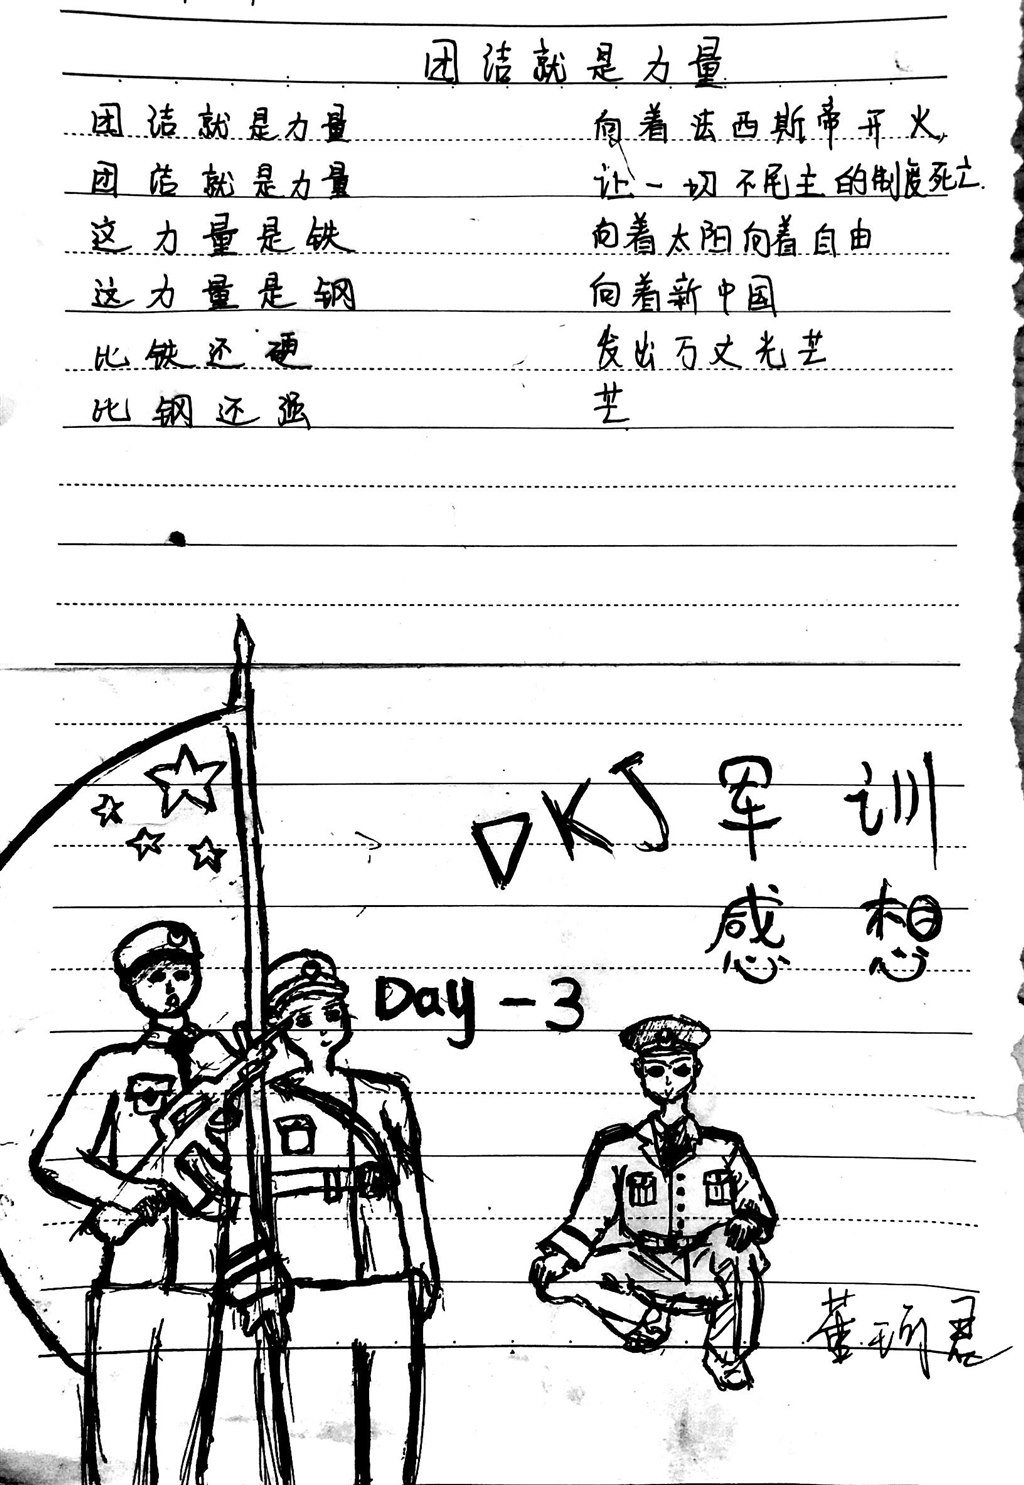 团洁就是力量
团洁就是力量
团洁就是力量
这力量是铁
这力量是钢
比铁还硬
比钢还强
向着法西斯帝开火,
让一切不民主的制度死亡.
向着太阳向着自由
向着新中国
发出万丈光芒
芒
DKJ军训
感想
Day-3
董